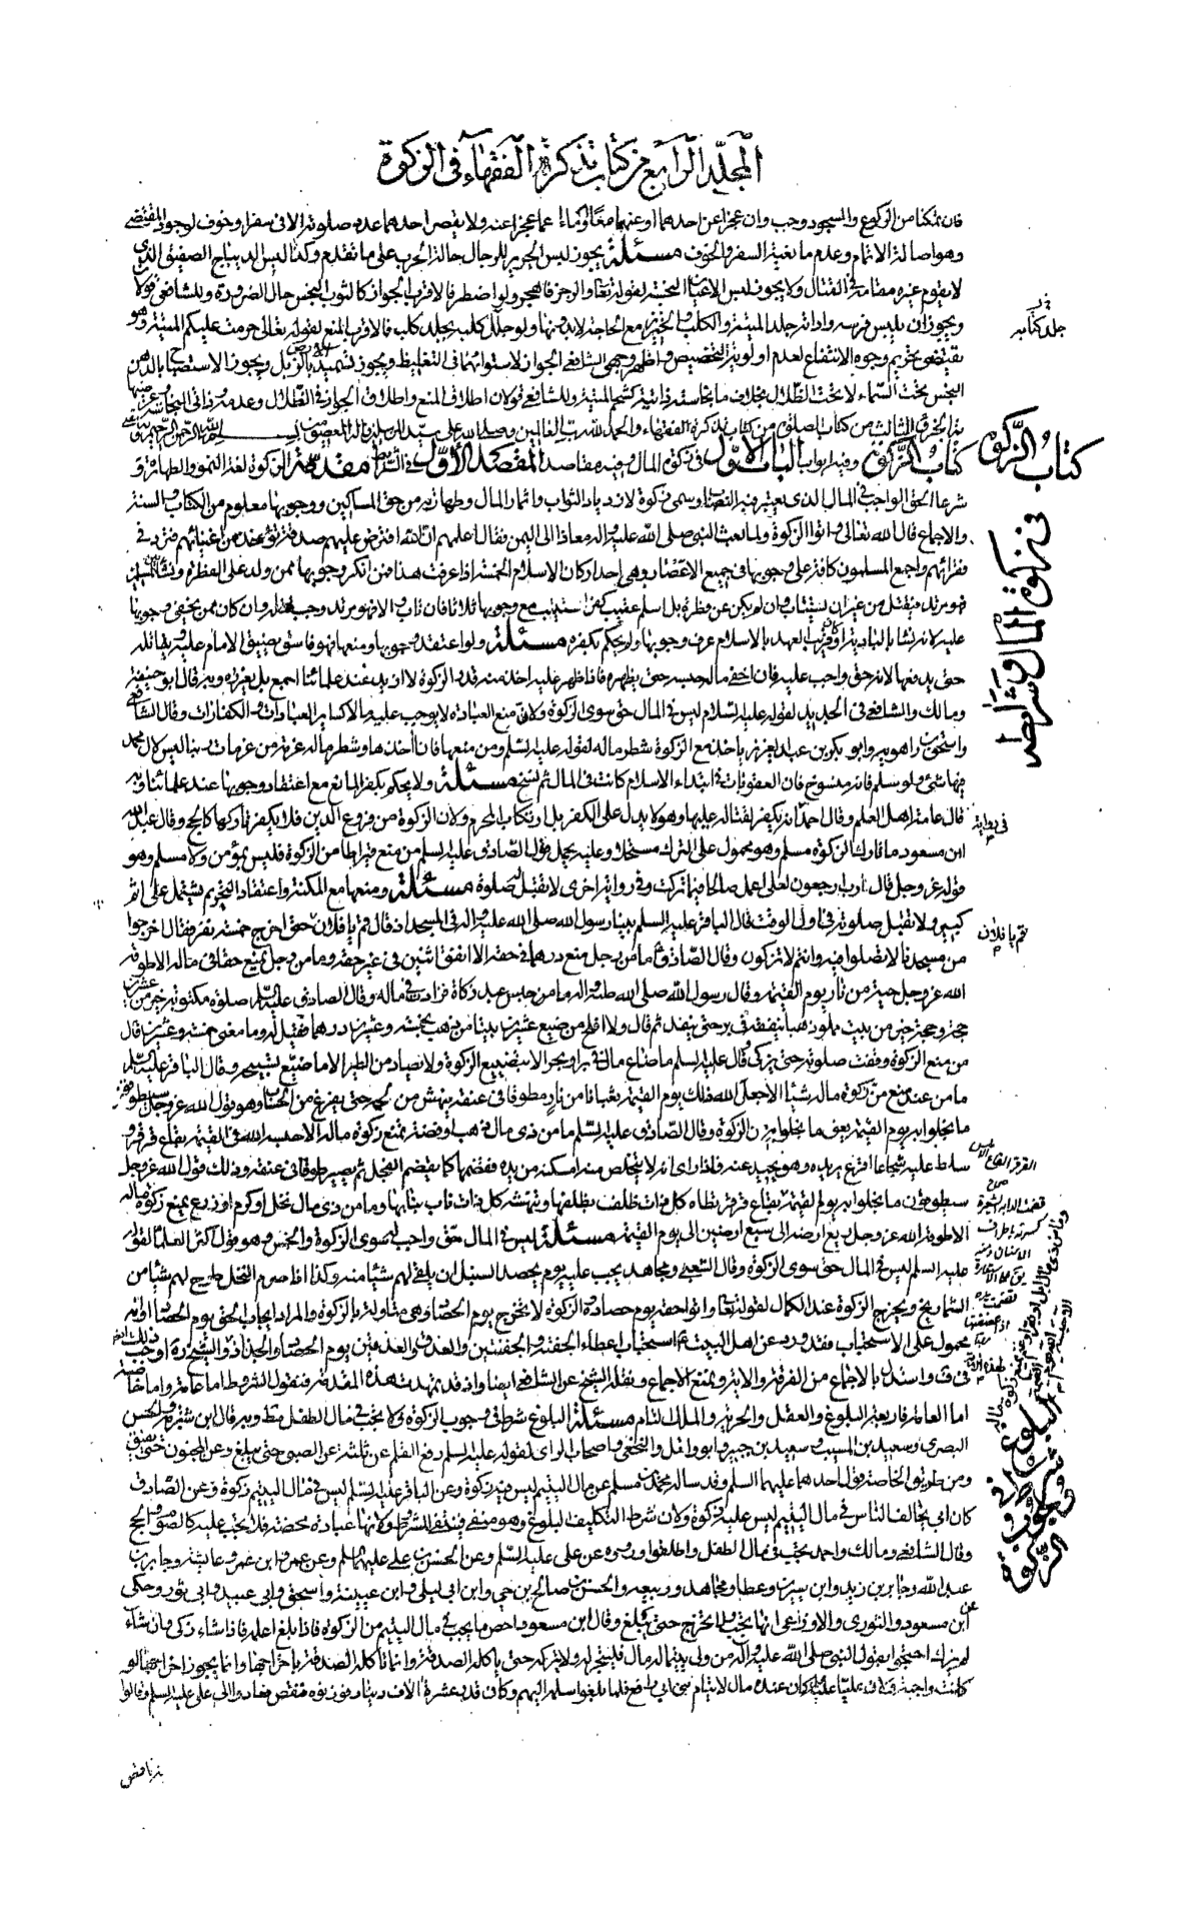 المجلد الرابع من كتاب تذكرة الفقهاء في الزكوة
فان تمكنا من الركوع والسجود وجب وان عجزا عن احدهما او عنهما معا اومئا عما عجزا عنه ولا يقصر احدهما عدد صلوته الا في سفر او خوف لوجود المقتضي
وهو اصالة الاتمام وعدم مانعية السفر والخوف مسئلة يجوز لبس الحرير للرجال حالة الحرب على ما تقدم وكذا لبس الديباج الصفيق الذي
لا يقوم غيره مقامه في القتال ولا يجوز لبس الاعيان النجسة لقوله تعالى والرجز فاهجر ولو اضطر فالاقرب الجواز كالثوب النجس حال الضرورة وللشافعي قولان
ويجوز ان يلبس فرسه واداته جلد الميتة والكلب والخنزير مع الحاجة لا بدونها ولو جلل كلبه بجلد كلب فالاقرب المنع لقوله تعالى حرمت عليكم الميتة وهو
يقتضي تحريم وجوه الانتفاع لعدم اولوية التخصيص واظهر وجهي الشافعي الجواز لاستوائهما في التغليظ ويجوز تسميد الارض بالزبل ويجوز الاستصباح بالدهن
النجس تحت السماء لا تحت الظلال بخلاف ما نجاسته ذاتية كشحم الميتة وللشافعي قولان اطلاق المنع واطلاق الجواز في الظلال وعدمه
كتاب الزكوة وفيه ابواب الباب الاول في زكوة المال وفيه مقاصد المقصد الاول في الشرائط مقدمة الزكوة لغة النمو والطهارة و
شرعا الحق الواجب في المال الذي يعتبر فيه النصاب وسمى زكوة لازدياد الثواب واثمار المال وطهارته من حق المساكين ووجوبها معلوم من الكتاب والسنة
والاجماع قال الله تعالى واتوا الزكوة ولما بعث النبي صلى الله عليه واله معاذا الى اليمن فقال اعلمهم ان الله افترض عليهم صدقة تؤخذ من اغنيائهم فترد في
فقرائهم واجمع المسلمون كافة على وجوبها في جميع الاعصار وهي احد اركان الاسلام الخمسة اذا عرفت هذا فمن انكر وجوبها ممن ولد على الفطرة ونشأ بين المسلمين
فهو مرتد يقتل من غير ان يستتاب وان لم يكن عن فطرة بل اسلم عقيب كفر استتيب مع وجوبها ثلاثا فان تاب والا فهو مرتد وجب قتله وان كان ممن يخفى وجوبها
عليه لانه نشأ بالبادية او كان قريب العهد بالاسلام عرف وجوبها ولم يحكم بكفره مسئلة ولو اعتقد وجوبها ومنعها فهو فاسق يضيق الامام عليه ويقاتله
حتى يدفعها لانه حق واجب عليه فان اخفى ماله حبسه حتى يظهره فاذا ظهر عليه اخذ منه قدر الزكوة لا ازيد عند علمائنا اجمع بل يعزره وبه قال ابو حنيفة
ومالك والشافعي في الجديد لقوله عليه السلام ليس في المال حق سوى الزكوة ولان منع العبادة لا يوجب عليه مالا كساير العبادات والكفارات وقال الشافعي
واسحق بن راهويه وابو بكر بن عبد العزيز ياخذ مع الزكوة شطر ماله لقوله عليه السلم ومن منعها فانا آخذها وشطر ماله عزمة من عزمات ربنا ليس لال محمد
فيها شئ ولو سلم فانه منسوخ فان العقوبات في ابتداء الاسلام كانت في المال ثم نسخ مسئلة ولا يحكم بكفر المانع مع اعتقاد وجوبها عند علمائنا وبه
قال عامة اهل العلم وقال احمد انه يكفر لقتاله عليها وهو لا يدل على الكفر بل ارتكاب المحرم ولان الزكوة من فروع الدين فلا يكفر تاركها كالحج وقال عبد الله
ابن مسعود ما تارك الزكوة بمسلم وهو محمول على الترك مستحلا وعليه يحمل قول الصادق عليه السلم من منع قيراطا من الزكوة فليس بمؤمن ولا مسلم وهو
قوله عز وجل قال رب ارجعون لعلي اعمل صالحا فيما تركت وفي رواية اخرى لا تقبل له صلوة مسئلة ومنعها مع المكنة واعتقاد التحريم يشتمل على اثم
كبير ولا تقبل صلوته في اول الوقت قال الباقر عليه السلم بينا رسول الله صلى الله عليه واله في المسجد اذ قال قم يا فلان حتى اخرج خمسة نفر فقال اخرجوا
من مسجدنا لا تصلوا فيه وانتم لا تزكون وقال الصادق ع ما من رجل منع درهما في حقه الا انفق اثنين في غير حقه وما من رجل يمنع حقا في ماله الا طوقه
الله عز وجل حية من نار يوم القيمة وقال رسول الله صلى الله عليه واله ما من حابس عبد زكاة فزادت في ماله وقال الصادق عليه السلم صلوة مكتوبة خير من عشرين
حجة وحجة خير من بيت مملو ذهبا ينفقه في بر حتى ينفد ثم قال ولا افلح من ضيع عشرين بيتا من ذهب بخمسة وعشرين درهما فقيل له وما معنى خمسة وعشرين قال
من منع الزكوة وقفت صلوته حتى يزكي وقال عليه السلم ما ضاع مال في بر او بحر الا بتضييع الزكوة ولا يصاد من الطير الا ما ضيع تسبيحه وقال الباقر عليه السلم
ما من عبد منع من زكوة ماله شيئا الا جعل الله ذلك يوم القيمة ثعبانا من نار مطوقا في عنقه ينهش من لحمه حتى يفرغ من الحساب وهو قول الله عز وجل سيطوقون
ما بخلوا به يوم القيمة يعني ما بخلوا به من الزكوة وقال الصادق عليه السلم ما من ذي مال ذهب او فضة يمنع زكوة ماله الا حبسه الله يوم القيمة بقاع قرقر و
سلط عليه شجاعا اقرع يريده وهو يحيد عنه فاذا راى انه لا يتخلص منه امكنه من يده فقضمها كما يقضم الفجل ثم يصير طوقا في عنقه وذلك قول الله عز وجل
سيطوقون ما بخلوا به يوم القيمة بقاع قرقر تطاه كل ذات ظلف بظلفها وتنهشه كل ذات ناب بنابها وما من ذي مال نخل او كرم او زرع يمنع زكوة ماله
الا طوقه الله عز وجل ريع ارضه الى سبع ارضين الى يوم القيمة مسئلة ليس في المال حق واجب سوى الزكوة والخمس وهو قول اكثر العلماء لقوله
عليه السلم ليس في المال حق سوى الزكوة وقال الشعبي ومجاهد يجب عليه يوم يحصد السنبل ان يلقى لهم شيئا منه وكذا اذا صرم النخل طرح لهم شيئا من
الشماريخ ويخرج الزكوة عند الكمال لقوله تعالى واتوا حقه يوم حصاده والزكوة لا تخرج يوم الحصاد وهي متاولة بالزكوة والمراد ايجاب الحق يوم الحصاد او انه
محمول على الاستحباب فقد ورد عن اهل البيت ع استحباب اعطاء الحفنة والحفنتين والعذق والعذقين يوم الحصاد والجذاذ والشيخ ره اوجب ذلك
في ف واستدل بالاجماع من الفرقة والاية ونمنع الاجماع ونقل الشيخ عن الشافعي ايضا واذ قد تمهدت هذه المقدمة فنقول الشروط اما عامة واما خاصة
اما العامة فاربعة البلوغ والعقل والحرية والملك التام مسئلة البلوغ شرط في وجوب الزكوة فلا تجب في مال الطفل مطلقا وبه قال ابن شبرمة والحسن
البصري وسعيد بن المسيب وسعيد بن جبير وابو وائل والنخعي واصحاب الراى لقوله عليه السلم رفع القلم عن ثلثة عن الصبي حتى يبلغ وعن المجنون حتى يفيق
ومن طريق الخاصة قول احدهما عليهما السلم وقد ساله محمد بن مسلم عن مال اليتيم ليس فيه زكوة وعن الباقر عليه السلم ليس في مال اليتيم زكوة وعن الصادق
كان ابي يخالف الناس في مال اليتيم ليس عليه زكوة ولان شرط التكليف البلوغ وهو منفي فينتفي المشروط ولانها عبادة محضة فلا تجب عليه كالصوم والحج
وقال الشافعي ومالك واحمد تجب في مال الطفل واطلقوا ورووه عن علي عليه السلم وعن الحسن بن علي عليهما السلم وعن عمر وابن عمر وعائشة وجابر بن
عبد الله وجابر بن زيد وابن سيرين وعطاء ومجاهد وربيعة والحسن بن صالح بن حي وابن ابي ليلى وابن عيينة واسحق وابي عبيد وابي ثور وحكي عن
ابن مسعود والثوري والاوزاعي انها تجب ولا تخرج حتى يبلغ وقال ابن مسعود احص ما يجب في مال اليتيم من الزكوة فاذا بلغ اعلمه فاذا شاء زكى وان شاء
لم يزك احتجوا بقول النبي صلى الله عليه واله من ولى يتيما له مال فليتجر له ولا يتركه حتى ياكله الصدقة وانما تاكله الصدقة باخراجها وانما يجوز اخراجها لو
كانت واجبة ولان عليا عليه السلم كان عنده مال لايتام بني ابي رافع فلما بلغوا سلمه اليهم وكان قدر عشرة الاف دينار فوزنوه فنقص فعادوا الى علي عليه السلم وقالوا
كتاب الزكوة
في زكوة المال و شرائطه
في رواية
قم يا فلان
البلوغ شرط في وجوب الزكوة